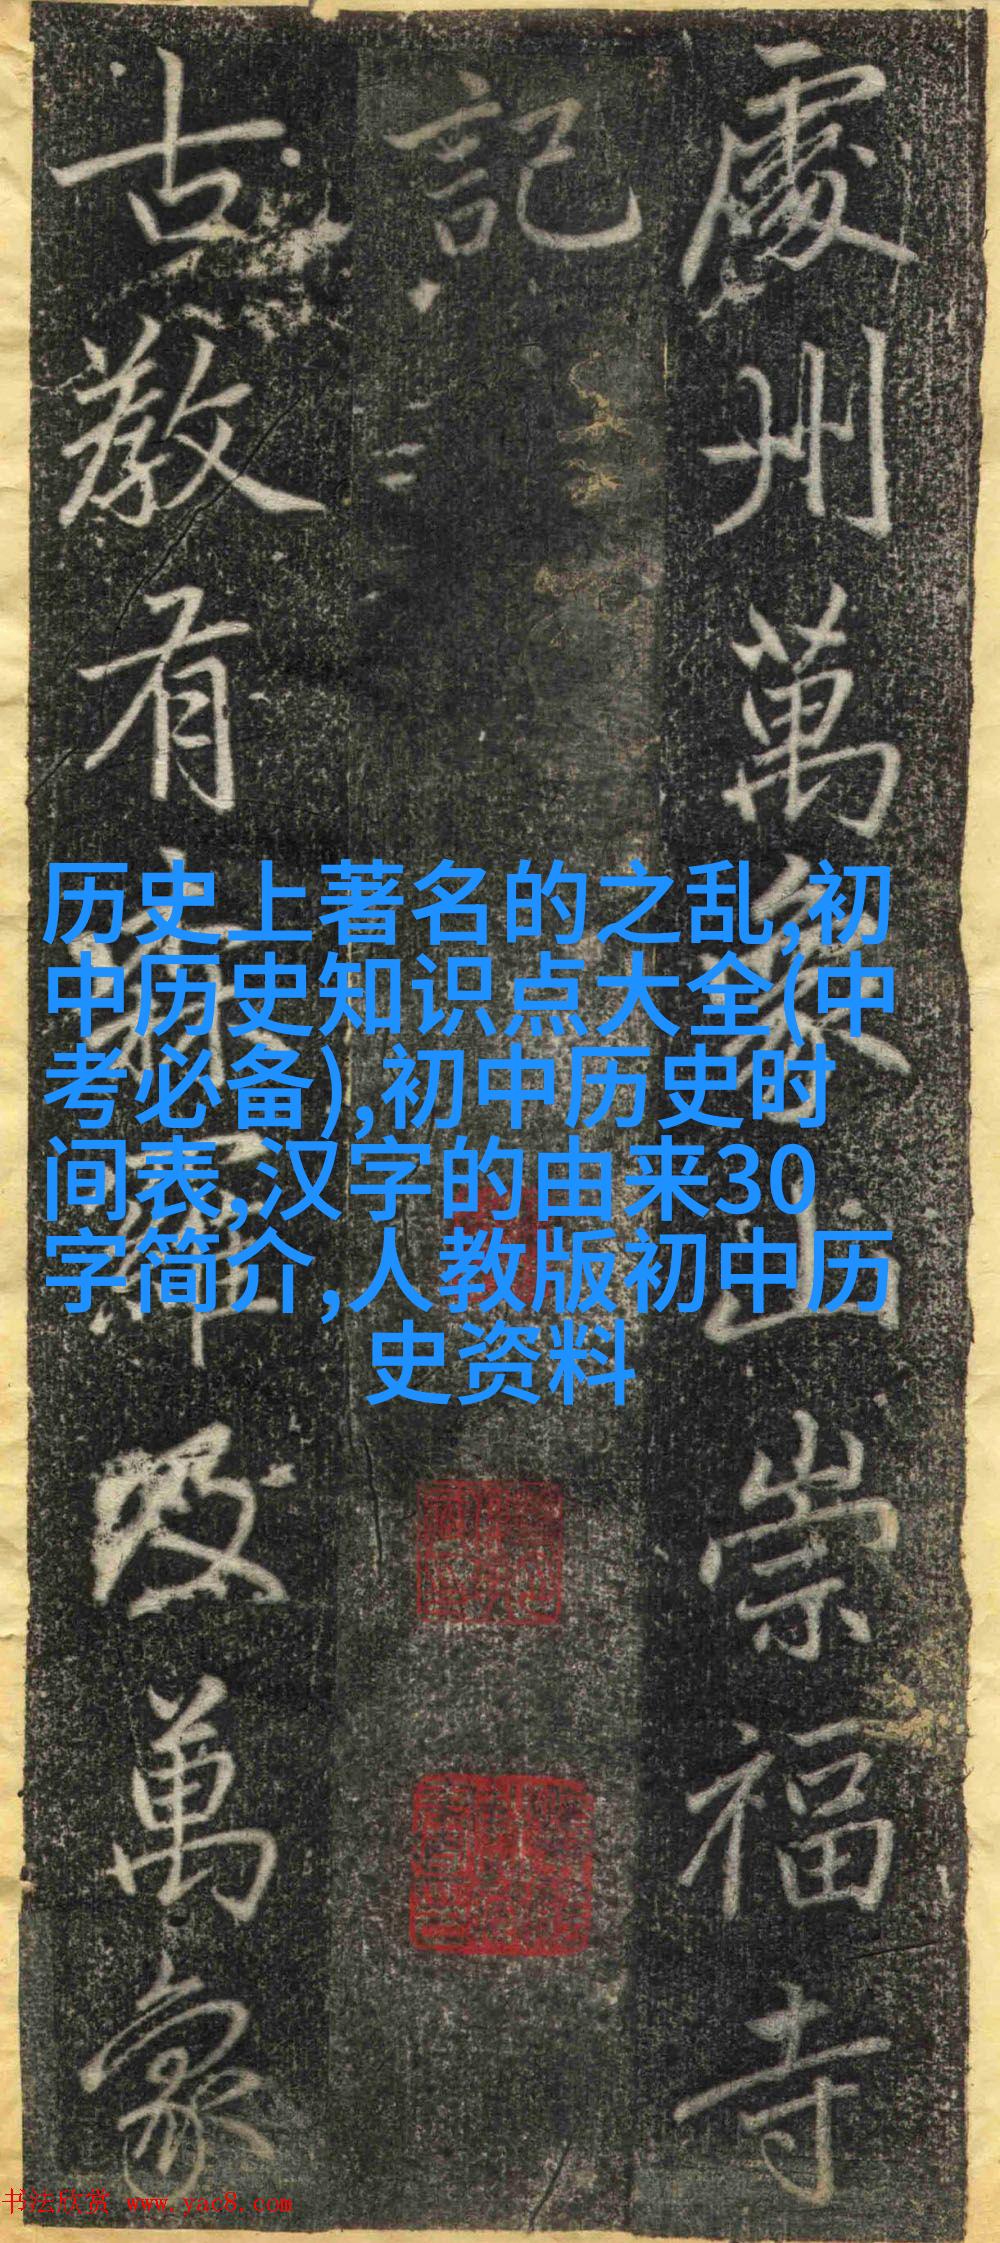 處州萬象山崇福寺
記
古教有萬象
历史上著名的之乱,初
中历史知识点大全(中
考必备),初中历史时
间表,汉字的由来30
字简介,人教版初中历
史资料
书法欣赏 www.yac8.com